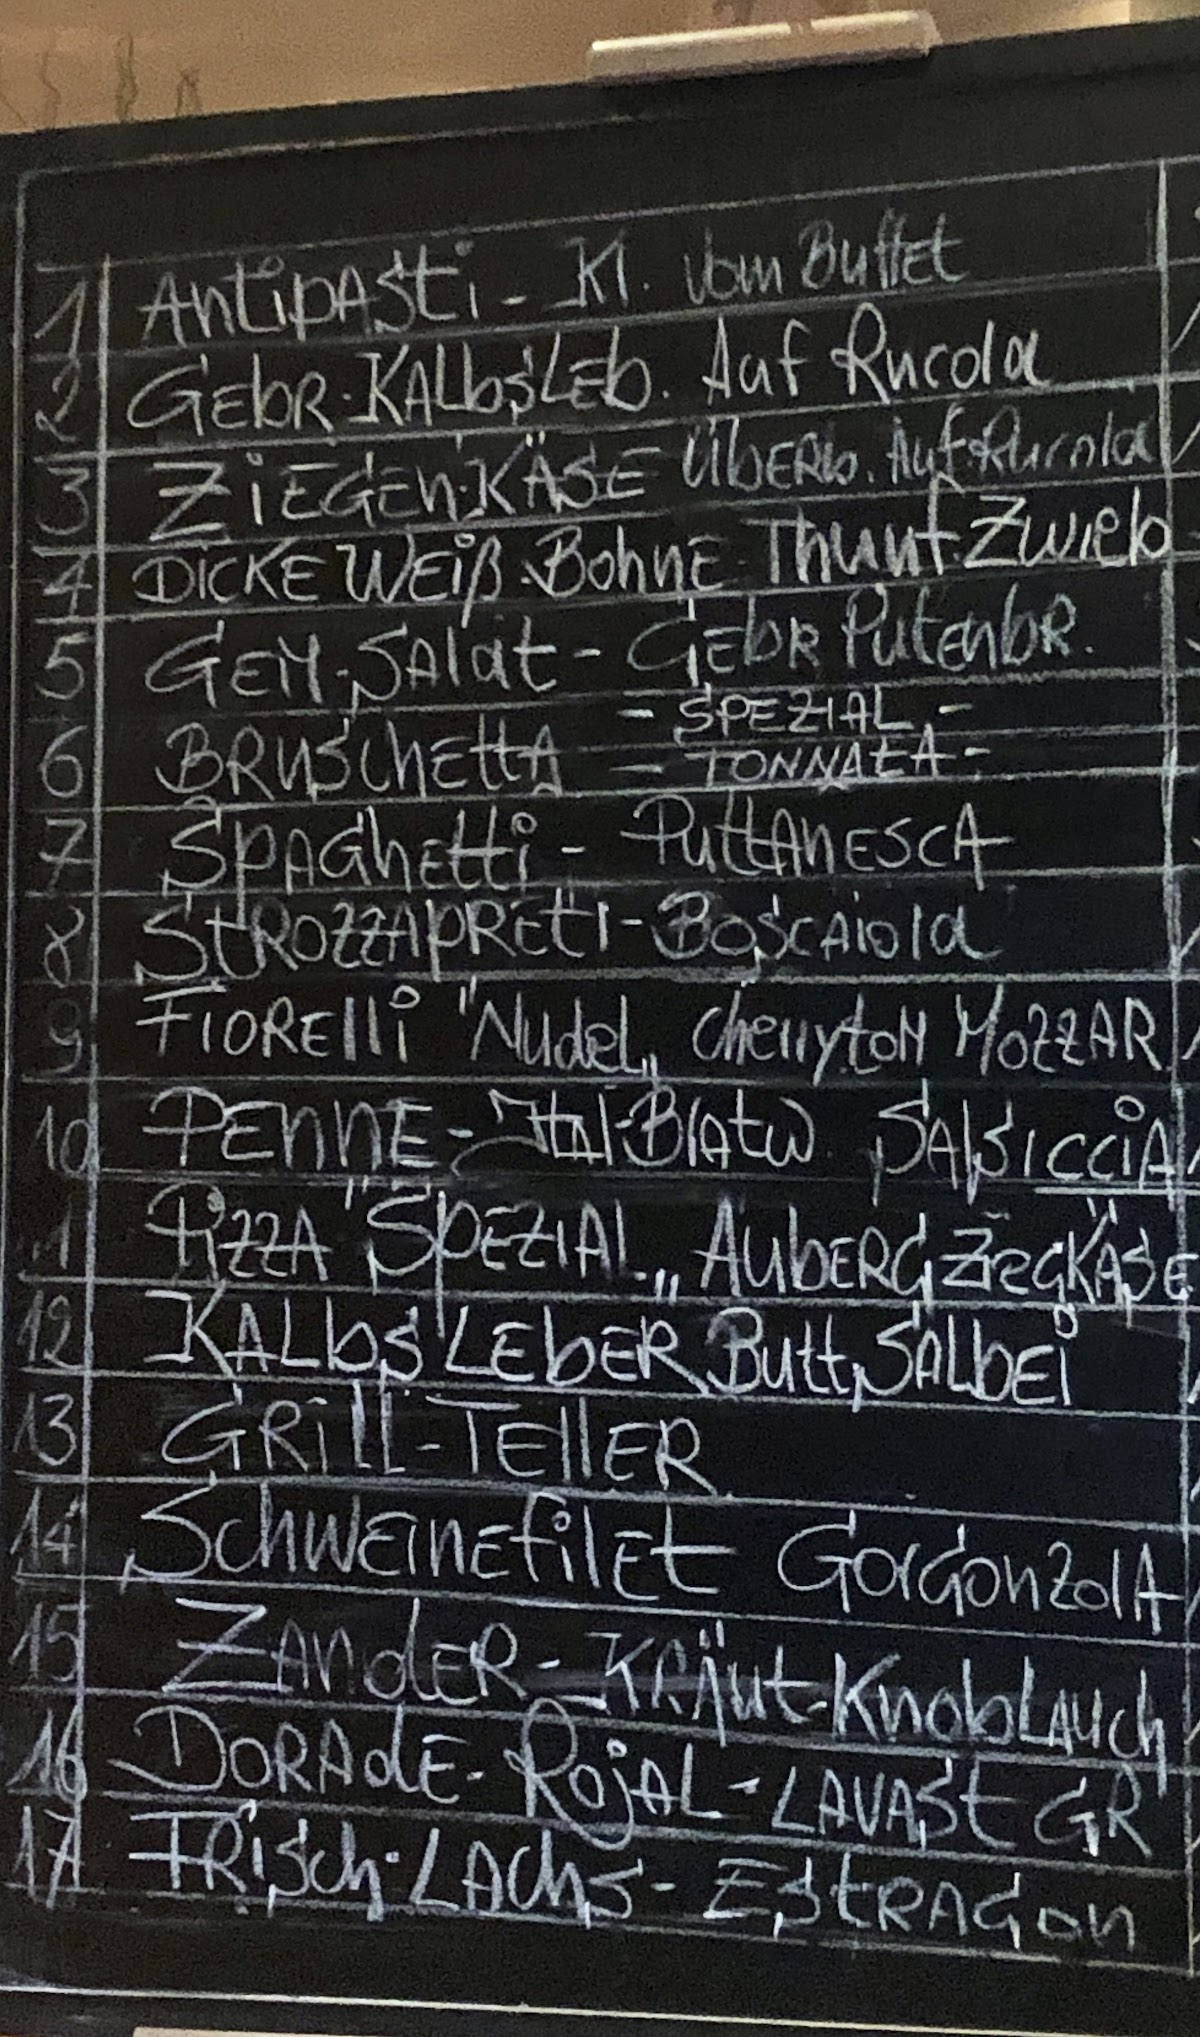 1 Antipasti - Kl. vom Buffet
2 Gebr. Kalbsleb. Auf Rucola
3 Ziegen.Käse Überb. Auf Rucola
4 Dicke Weiß. Bohne Thunf. Zwieb
5 Gem. Salat - Gebr Putenbr.
- SPEZIAL -
6 Bruschetta - TONNATA -
7 Spaghetti - Puttanesca
8 Strozzapreti - Boscaiola
9 Fiorelli "Nudel„ Cherrytom Mozzar
10 Penne - Ital-Blatw. Salsiccia
11 Pizza "Spezial„ Auberg Ziegkäse
12 Kalbsleber Butt, Salbei
13 Grill-Teller
14 Schweinefilet Gorgonzola
15 Zander - Kräut-Knoblauch
16 Dorade - Rojal - Lavast GR
17 Frisch-Lachs - Estragon